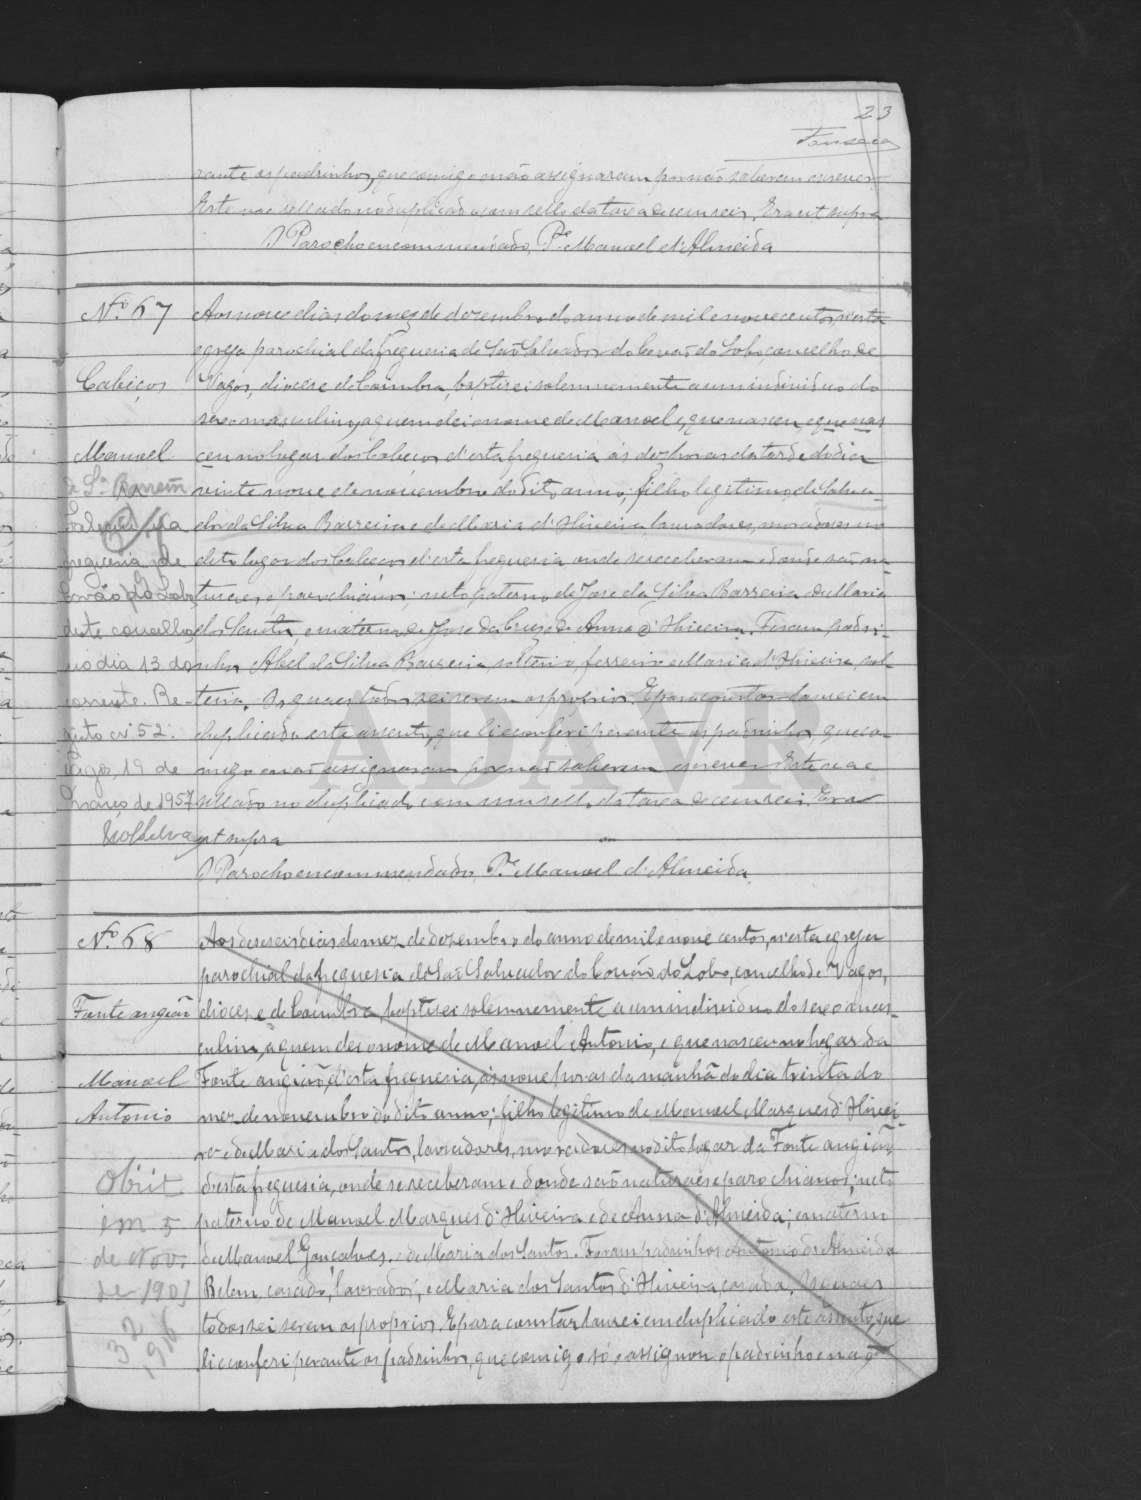 23
Fonseca
rante os padrinhos, que comigo não assignaram por não saberem escrever.
Este vae sellado no duplicado com sello da taxa de cem reis. Era ut supra
O Parocho encommendado, P.e Manoel d'Almeida
N.º 67
Cabeços
Manoel
Aos nove dias do mez de dezembro do anno de mil e nove centos, n'esta
egreja parochial da freguesia de São Salvador do Covão do Lobo, concelho de
Vagos, diocese de Coimbra, baptisei solemnemente a um individuo do
sexo masculino, a quem dei o nome de Manoel e, que nasceu e que nas
ceu no lugar dos Cabeços d'esta freguesia ás dez horas da tarde do dia
vinte nove de novembro do dito anno; filho legitimo de Salva-
dor da Silva Barreira e de Maria d'Oliveira, lavradores, moradores no
dito lugar dos Cabeços d'esta freguesia onde se receberam e donde são na-
turaes e parochianos; neto paterno de Jose da Silva Barreira e de Maria
dos Santos, e materno de Jose da Cruz e de Anna d'Oliveira. Foram padri-
nhos Abel da Silva Barreira, solteiro, ferreiro e Maria d'Oliveira, sol-
teira. Os quaes todos sei serem os proprios. E para constar lavrei em
duplicado este assento, que li e conferi perante os padrinhos, que co-
migo não assignaram por não saberem escrever. Este vae
sellado no duplicado com um sello da taxa de cem reis. Era
ut supra
O Parocho encommendado, P.e Manoel d'Almeida
freguesia de
Covão do Lobo
deste concelho
no dia 13 do
corrente. Re-
gisto nº 52.
Vagos, 19 de
Março de 1957
N.º 68
Fonte angião
Manoel
Antonio
Obiit
em 5
de Nov.
de 1901
Aos deseseis dias do mez de dezembro do anno de mil e nove centos, n'esta egreja
parochial da freguesia de São Salvador do Covão do Lobo, concelho de Vagos,
diocese de Coimbra, baptisei solemnemente a um individuo do sexo mas-
culino, a quem dei o nome de Manoel Antonio, e que nasceu no lugar da
Fonte angião, d'esta freguesia, ás nove horas da manhã do dia trinta do
mez de novembro do dito anno; filho legitimo de Manoel Marques d'Olivei-
ra e de Maria dos Santos, lavradores, moradores no dito lugar da Fonte angião,
d'esta freguesia, onde se receberam e donde são naturaes e parochianos; neto
paterno de Manoel Marques d'Oliveira e de Anna d'Almeida; e materno
de Manoel Gonçalves e de Maria dos Santos. Foram padrinhos Antonio de Almeida
Belem, casado, lavrador, e Maria dos Santos d'Oliveira, casada. Os quaes
todos sei serem os proprios. E para constar lavrei em duplicado este assento, que
li e conferi perante os padrinhos, que comigo só assignou o padrinho e não
ADAVR